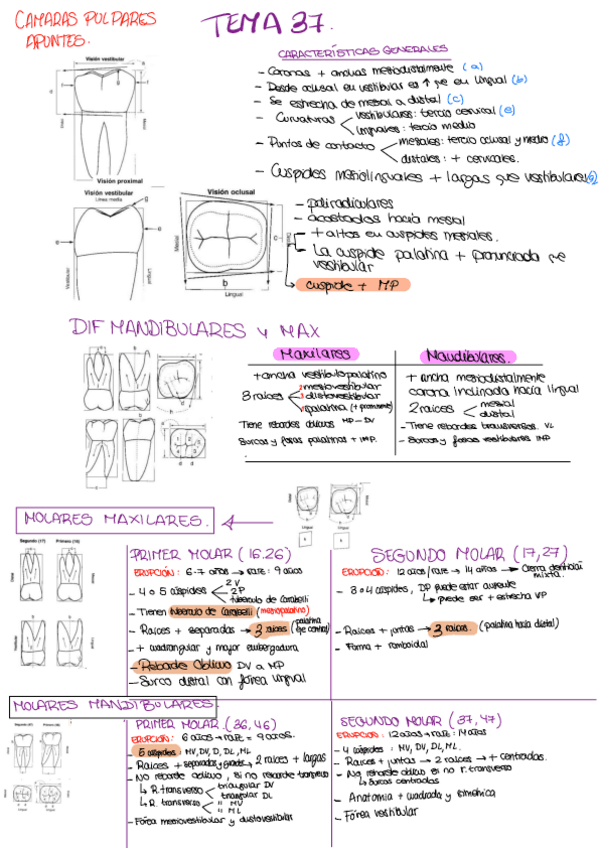 CAMARAS PULPARES
APUNTES.
TEMA 37.
CARACTERÍSTICAS GENERALES
- Coronas + anchas mesiodistalmente (a)
- Desde oclusal en vestibular es ↑ que en lingual (b)
- Se estrecha de mesial a distal (c)
- Curvaturas
vestibulares: tercio cervical (e)
linguales: tercio medio
- Puntos de contacto
mesiales: tercio oclusal y medio (f)
distales: + cervicales.
- Cúspides mesiolinguales + largas que vestibulares (g)
Visión vestibular
Visión proximal
Visión vestibular
Línea media
Visión oclusal
Vestibular
Lingual
Mesial
b
Lingual
- poliradiculares
- acostados hacia mesial
- + altos en cúspides mesiales.
- La cuspide palatina + pronunciada que vestibular
cuspide + MP
DIF MANDIBULARES y MAX
Maxilares
Mandibulares.
+ ancha vestibulopalatino
3 raices
mesiovestibular
distovestibular
palatina (+ prominente)
Tiene rebordes oblicuos MP-DV
Surcos y fosas palatinas + IMP.
+ ancha mesiodistalmente
corona inclinada hacia lingual
2 raices
mesial
distal
- Tiene rebordes transversos. VL
- Surcos y fosas vestibulares IMP
MOLARES MAXILARES.
Lingual
Lingual
Segundo (17) Primero (16)
PRIMER MOLAR (16.26)
ERUPCIÓN: 6-7 años → RAIZ: 9 años
- 4 o 5 cúspides
2 V
2 P
tubérculo de Carabelli
- Tienen tubérculo de Carabelli (mesiopalatino)
- Raices + separadas → 3 raices (palatina eje central)
- + cuadrangular y mayor embergadura
- Reborde Oblicuo DV a MP
- Surco distal con fosea lingual
SEGUNDO MOLAR (17,27)
ERUPCIÓN: 12 años/RAIZ → 14 años → Cierra dentición mixta.
- 3 o 4 cúspides, DP puede estar ausente
↳ puede ser + estrecha VP
- Raices + juntas → 3 raices. (palatina hacia distal)
- Forma + romboidal
MOLARES MANDIBULARES
PRIMER MOLAR (36,46)
ERUPCIÓN: 6 años → RAIZ = 9 años.
- 5 cúspides: MV, DV, D, DL, ML
- Raices + separadas y grandes → 2 raices + largas
- No reborde oblicuo, si no reborde transverso
↳ R. transverso
triangular DV
triangular DL
↳ R. transverso
" MV
" ML
- Fosea mesiovestibular y distovestibular
SEGUNDO MOLAR (37,47)
ERUPCIÓN: 12 años → RAIZ: 14 años
- 4 cúspides: MV, DV, DL, ML.
- Raices + juntas → 2 raices → + centradas.
- No reborde oblicuo si no r. transverso
↳ Surcos centrados
- Anatomia + cuadrada y simétrica
- Fosea vestibular